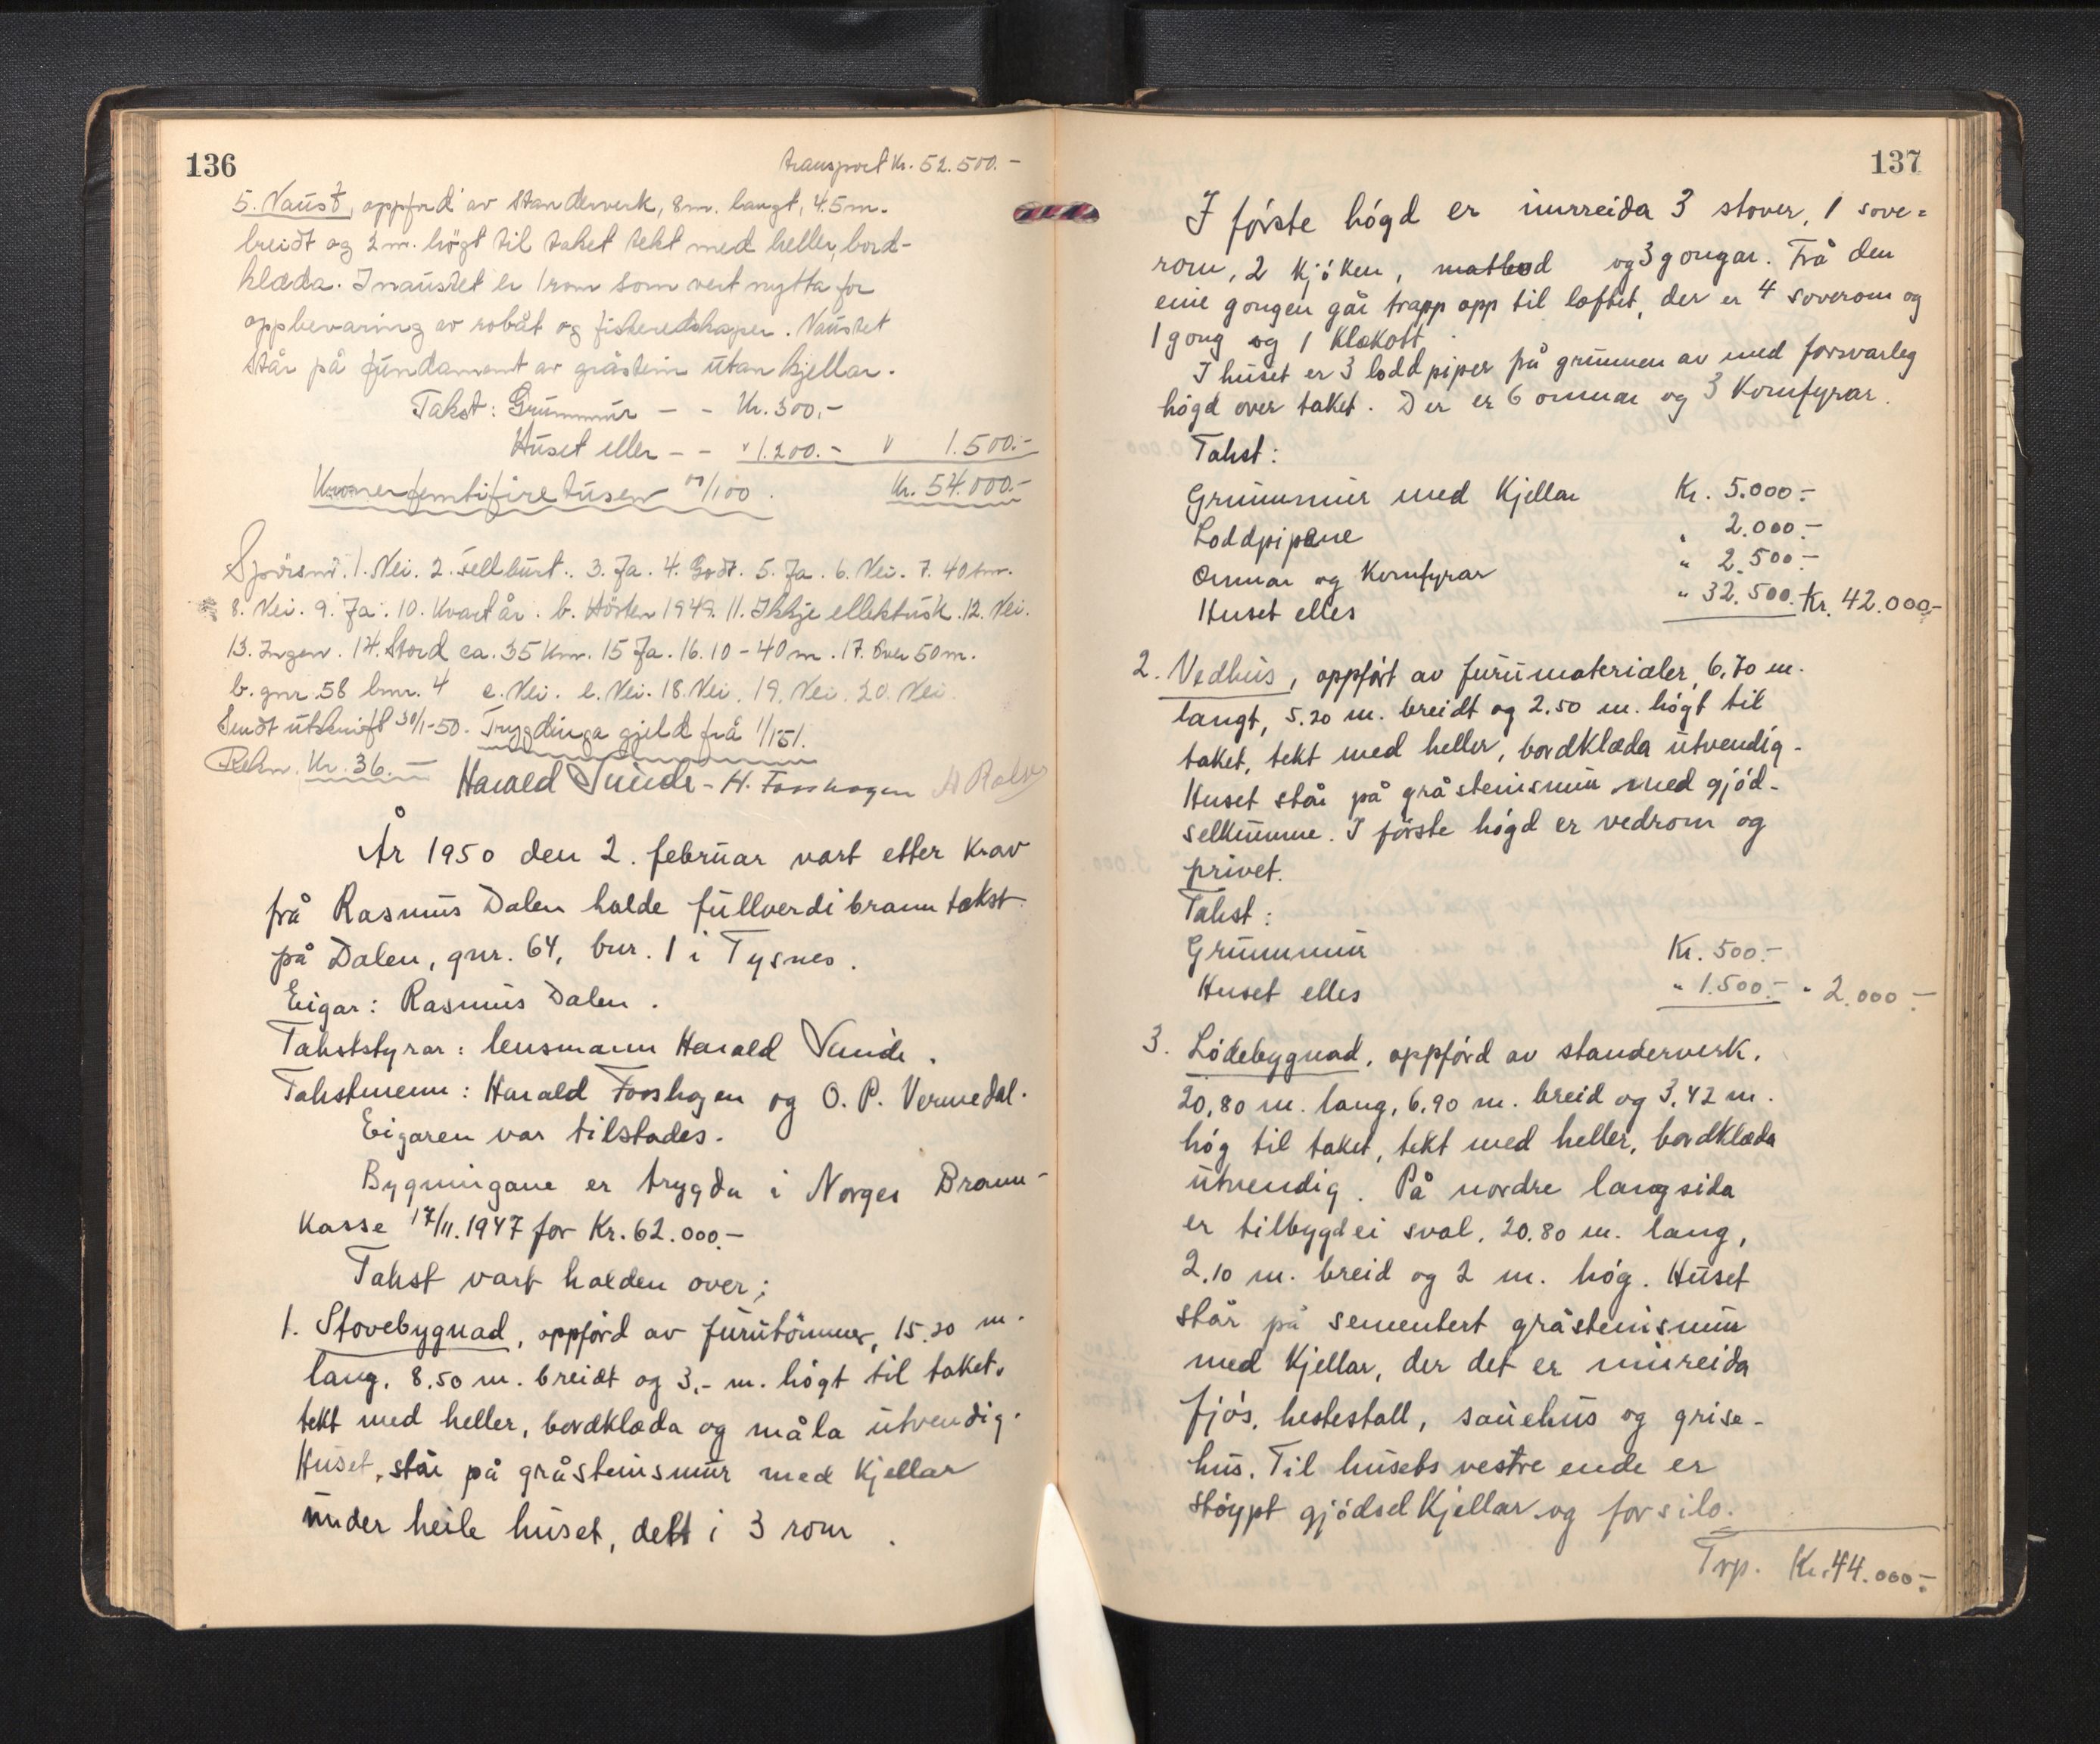 136
transport Kr. 52.500.-
5. Naust, oppførd av standerverk, 8m. langt, 4.5m.
breidt og 2 m. högt til taket tekt med heller, bord-
klæda. I naustet er 1 rom som vert nytta for
oppbevaring av robåt og fiskereidskaper. Naustet
står på fundament av gråstein utan kjellar.
Takst: Grunnmur - - Kr. 300.-
Huset eller - - " 1.200.- " 1.500.-
Kroner femtifire tusen 00/100. Kr. 54.000.-
Spörsm. 1. Nei. 2. sellburt. 3. Ja. 4. Godt. 5. Ja. 6. Nei. 7. 40 m.
8. Nei. 9. Ja. 10. Kvart år. b. Hösten 1949. 11. Ikkje ellektrisk. 12. Nei.
13. Ingen. 14. Stord ca. 35 km. 15 Ja. 16. 10-40 m. 17. Over 50 m.
b. gnr. 58 bnr. 4 c. Nei. e. Nei. 18. Nei. 19. Nei. 20. Nei.
Sendt utskrift 30/1-50. Trygdinga gjeld frå 1/1 51.
Rekn. Kr. 36.-
Harald Sunde - H. Fosshagen
År 1950 den 2. februar vart etter krav
frå Rasmus Dalen halde fullverdi branntakst
på Dalen, gnr. 64, bnr. 1 i Tysnes.
Eigar: Rasmus Dalen.
Takststyrar: lensmann Harald Sunde.
Takstmenn: Harald Fosshagen og O. P. Vermedal.
Eigaren var tilstades.
Bygningane er trygda i Norges Brann-
kasse 17/11. 1947 for Kr. 62.000.-
Takst vart halden over;
1. Stovebygnad, oppførd av furutömmer, 15.20 m.
lang, 8.50 m. breidt og 3,- m. högt til taket,
tekt med heller, bordklæda og måla utvendig.
Huset, står på gråsteinsmur med kjellar
under heile huset, delt i 3 rom.
137
I fórste hógd er innreida 3 stover, 1 sove=
rom, 2 kjóken, matbod og 3 gongar. Frå den
eine gongen går trapp opp til loftet, der er 4 soverom og
1 gong og 1 klekott.
I huset er 3 loddpiper frå grunnen av med forsvarleg
hógd over taket. Der er 6 omnar og 3 komfyrar.
Takst:
Grunnmur med kjellar Kr. 5.000.-
Loddpipene " 2.000.-
Omnar og komfyrar " 2.500.-
Huset elles " 32.500. Kr. 42.000.-
2. Vedhus, oppfórt av furumaterialer, 6,70 m.
langt, 5.20 m. breidt og 2.50 m. hógt til
taket, tekt med heller, bordklæda utvendig.
Huset står på gråsteinsmur med gjód-
selkumme. I fórste hógd er vedrom og
privet.
Takst:
Grunnmur Kr. 500.-
Huset elles " 1.500.- " 2.000.-
3. Lódebygnad, oppfórd av standerverk,
20,80 m. lang, 6,90 m. breid og 3,42 m.
hóg til taket, tekt med heller, bordklæda
utvendig. På nordre langsida
er tilbygd ei sval, 20.80 m. lang,
2.10 m. breid og 2 m. hóg. Huset
står på sementert gråsteinsmur
med kjellar, der det er innreida
fjós, hestestall, sauehus og grise-
hus. Til husets vestre ende er
stóypt gjódselkjellar og forsilo.
Trp. Kr. 44.000.-